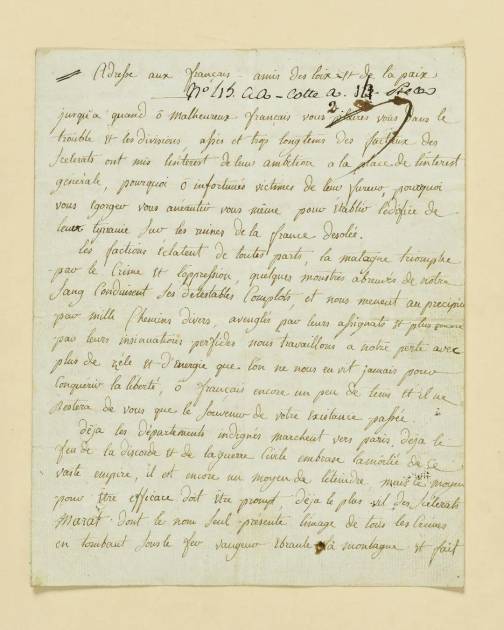 Adresse aux français amis des loix et de la paix
N° 415. AA - Cotte A.
jusqu'a quand ô malheureux français vous plairés vous dans le
trouble et les divisions, assés et trop longtems des factieux des
scelerats ont mis linterest de leur ambition a la place de linterest
générale, pourquoi ô infortunés victimes de leur fureur, pourquoi
vous egorger vous anéantir vous même pour établir lédifice de
leur tyranie sur les ruines de la france desolée.
les factions éclatent de toutes parts, la matagne triomphe
par le Crime et loppression, quelques monstres abreuvés de notre
Sang Conduisent Ses détestables Complots et nous menent au precipice
par mille Chemins divers, avenglés par leurs assignats et plus encore
par leurs insinuations perfides nous travaillons a notre perte avec
plus de zèle et d'energie que l'on ne nous en vit jamais pour
Conquerir la liberté, ô français encore un peu de tems et il ne
Restera de vous que le Souvenir de votre existance passée
déja les départements indignés marchent vers paris, déja le
feu de la discorde et de la guerre Civile embrase la moitié de ce
vaste empire, il est encore un moyen de léteindre, mais le moyen
pour être efficace doit être prompt déja le plus vil des scélerats
Marat dont le nom Seul présente limage de tous les Crimes
en tombant Sous le fer vangeur ebranle la montagne et fait